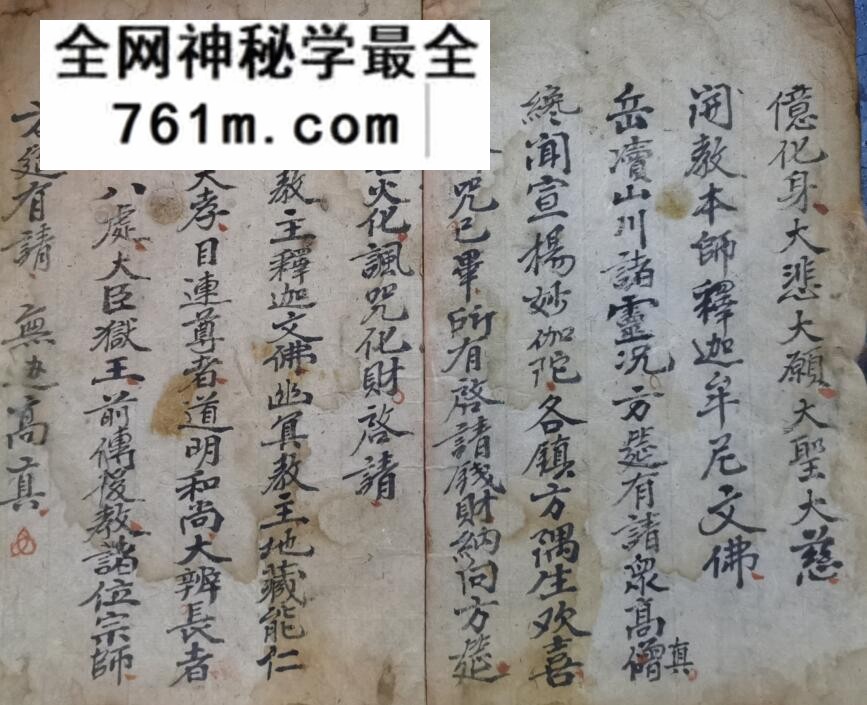 全网神秘学最全
761m.com
億化身大悲大願大聖大慈
開教本師釋迦牟尼文佛
岳瀆山川諸靈况方筵有請衆高僧真
纔聞宣楊妙伽陀各鎮方隅生欢喜
咒已畢所有啓請錢財納向方筵
火化諷咒化財啓請
教主釋迦文佛幽冥教主地藏能仁
大孝目連尊者道明和尚大辨長者
八處大臣獄王前傳後教諸位宗師
方筵有請 無边高真